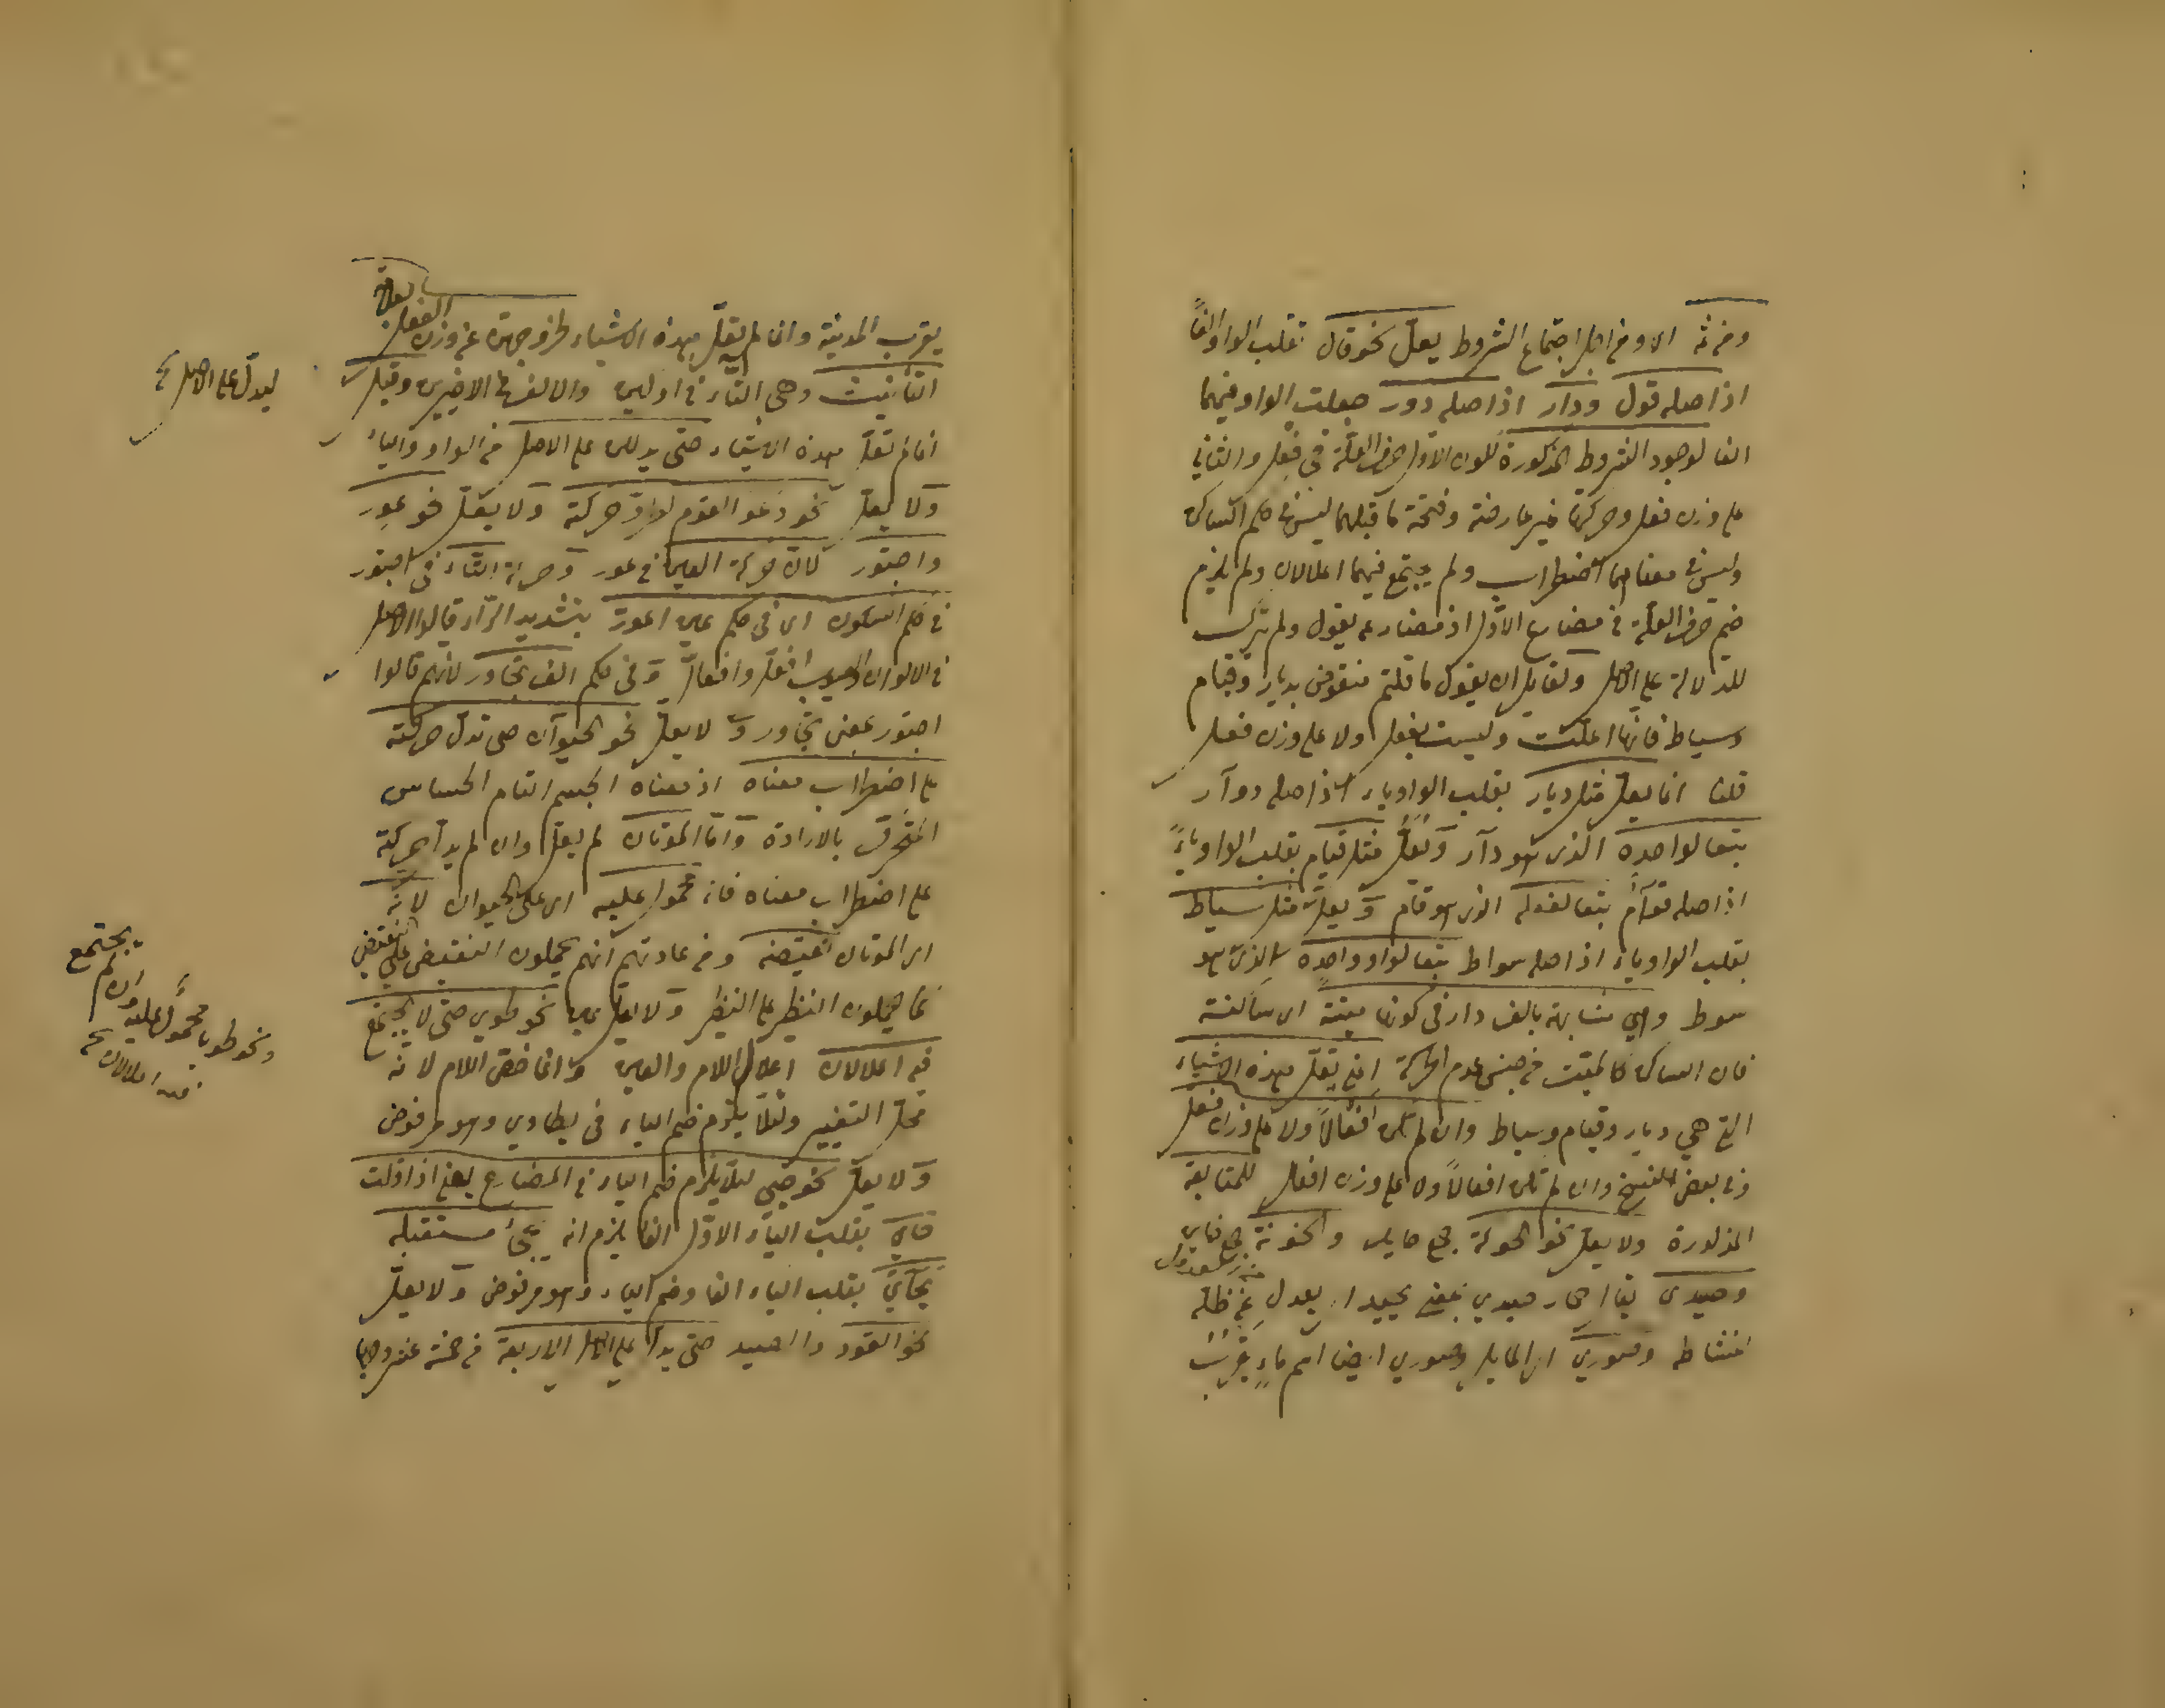 ومن ثمه الا ومن اجل اجتماع الشروط يعل نحو قال تقلب الواو الفا
اذ اصله قول ودار اذ اصله دور جعلت الواو فيهما
الفا لوجود الشروط المذكورة لكون الاول حرف العلة في فعل والثاني
على وزن فعل وحركتها غير عارضة وفتحة ما قبلهما ليس في حكم الساكن
وليس في معناهما اضطراب ولم يجتمع فيهما اعلالان ولم يلزم
ضم حرف العلة في مضارع الاول اذ مضارعه يقول ولم يترك
للدلالة على الاصل ولقايل ان يقول ما قلتم منقوض بديار وقيام
وسياط فانها اعلت وليست بفعل ولا على وزن فعل
قلنا انما يعل مثل ديار بقلب الواو ياء اذ اصله دوار
تبعا لواحده الذى هو دار ويعل مثل قيام بقلب الواو ياءً
اذ اصله قوام تبعا لفعله الذى هو قام ويعل مثل سياط
بقلب الواو ياء اذ اصله سواط تبعا لواو واحده الذى هو
سوط وهي مشابهة بالف دار في كونها ميتة اى ساكنة
فان الساكن كالميت في جنس عدم الحركة اعني تعل بهذه الاشياء
التي هي ديار وقيام وسياط وان لم تكن افعالاً ولا على وزن فعل
وفي بعض النسخ وان لم تكن افعالاً ولا على وزن افعال للمتابعة
المذكورة ولا يعل نحو الحوكة جمع حايك والخونة جمع خاين
وحيدى يقال حمار حيدي بمعنى يحيد اى يعدل عن ظله
لنشاطه وصورى اى المايل وصوري ايضا اسم ماءٍ يقرب
يقرب المدينة وانما لم يعل بهذه الاشياء لخروجهن عن وزن الفعل بعلامة
التأنيث وهي التاء في اولين والالف في الاخيرين وقيل
انما لم تعل بهذه الاشياء حتى يدللن على الاصل من الواو والياء
ليدل على الاصل
ولا يعل نحو دعوا القوم لطرو حركته ولا يعل نحو عور
واجتور لان حركة العين في عور وحركة التاء في اجتور
في حكم السكون اى في حكم عين اعور بتشديد الراء قالوا الاصل
في الالوان والعيوب افعل وافعال وفي حكم الف تجاور لانهم قالوا
اجتور بمعنى تجاور ولا يعل نحو الحيوان حتى تدل حركته
على اضطراب معناه اذ معناه الجسم التام الحساس
المتحرك بالارادة واما الموتان لم يعل وان لم يدل حركته
على اضطراب معناه فانه محمول عليه اى على الحيوان لانه
اى الموتان نقيضه ومن عادتهم انهم يحملون النقيض على النقيض
كما يحملون النظير على النظير ولا يعل عين نحو طوي حتى لا يجتمع
فيه اعلالان اعلال اللام والعين وانما خص اللام لانه
محل التغيير ولئلا يلزم ضم الياء في يطاوي وهو مرفوض
ونحو طويا محمول عليه وان لم يجتمع
فيه اعلالان
ولا يعل نحو حيي لئلا يلزم ضم الياء في المضارع يعني اذا قلت
حاي بقلب الياء الاول الفا يلزم ان يجئ مستقبله
يحاي بقلب الياء الفا وضم الياء وهو مرفوض ولا يعل
نحو القود والصيد حتى يدل على الاصل الاربعة في خمسة عشر وجها